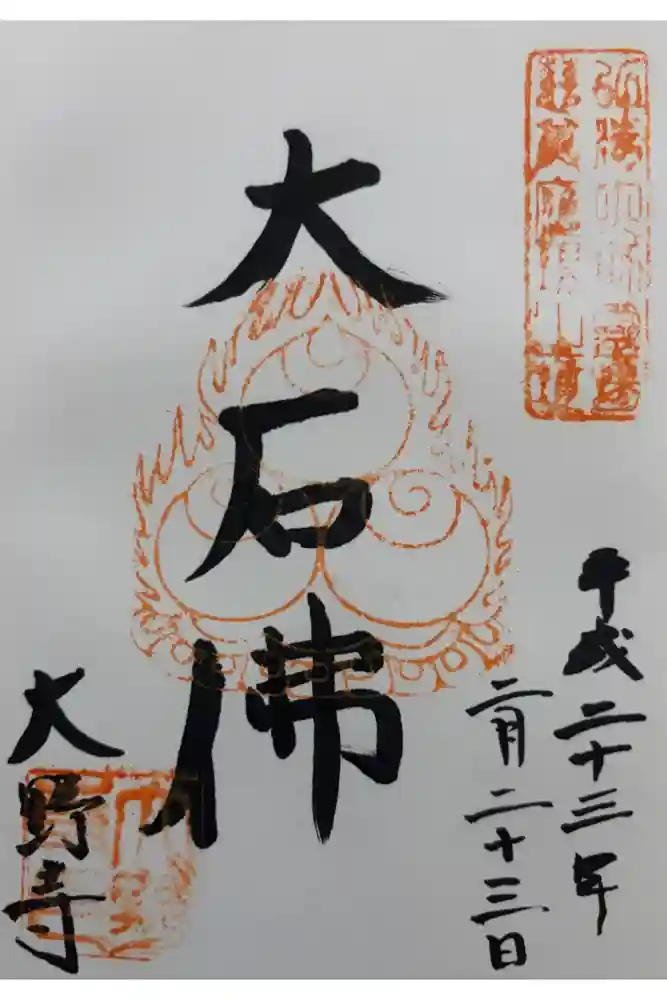 平成二十三年
二月二十三日
大石佛
大野寺